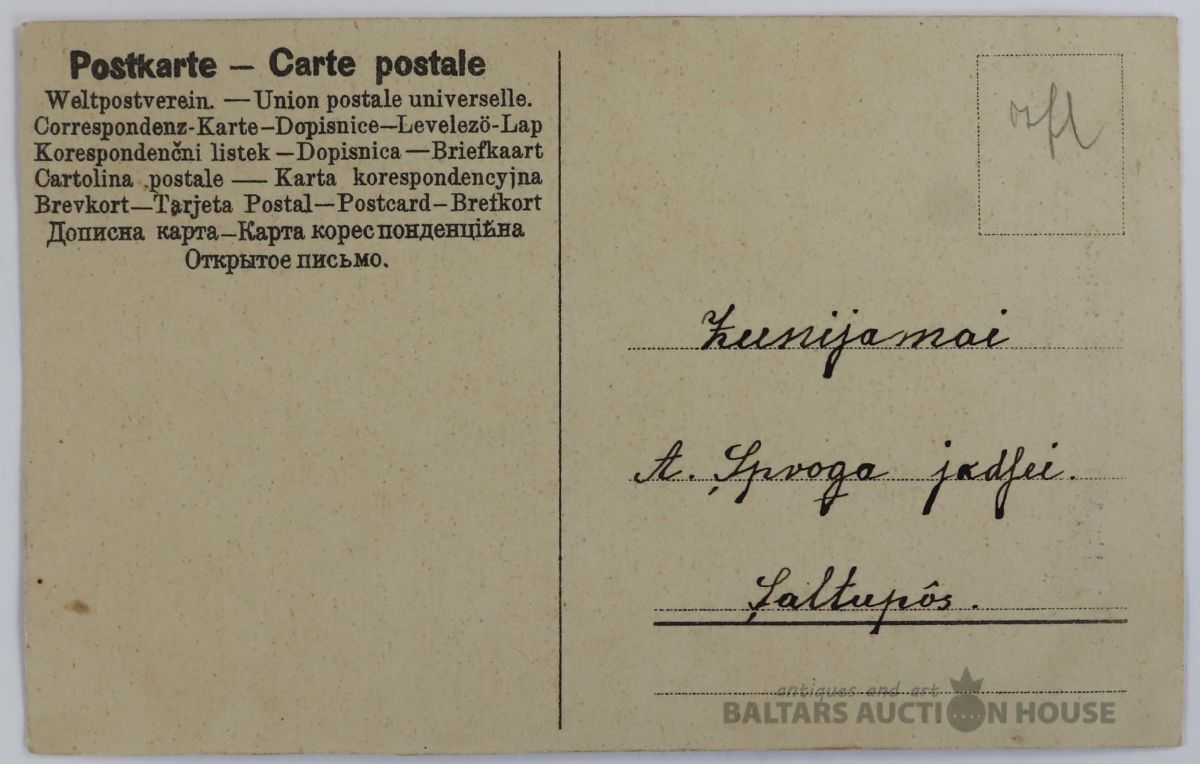 Postkarte – Carte postale
Weltpostverein. — Union postale universelle.
Correspondenz-Karte–Dopisnice–Levelezö-Lap
Korespondenčni listek – Dopisnica — Briefkaart
Cartolina postale — Karta korespondencyjna
Brevkort—Tarjeta Postal—Postcard–Brefkort
Дописна карта–Карта кореспонденційна
Открытое письмо.
A. Şpvoga jkdſei.
Şaltupôs.
antiques and art
BALTARS AUCTION HOUSE